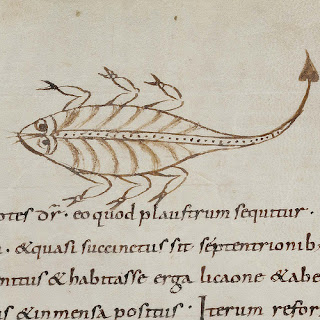 otes dr̄ · eo quod plaustrum sequitur ·
· & quasi succinctus sit séptentrionib
entius & habitasse erga licaone & abe
s & inmensa positus · Iterum refor